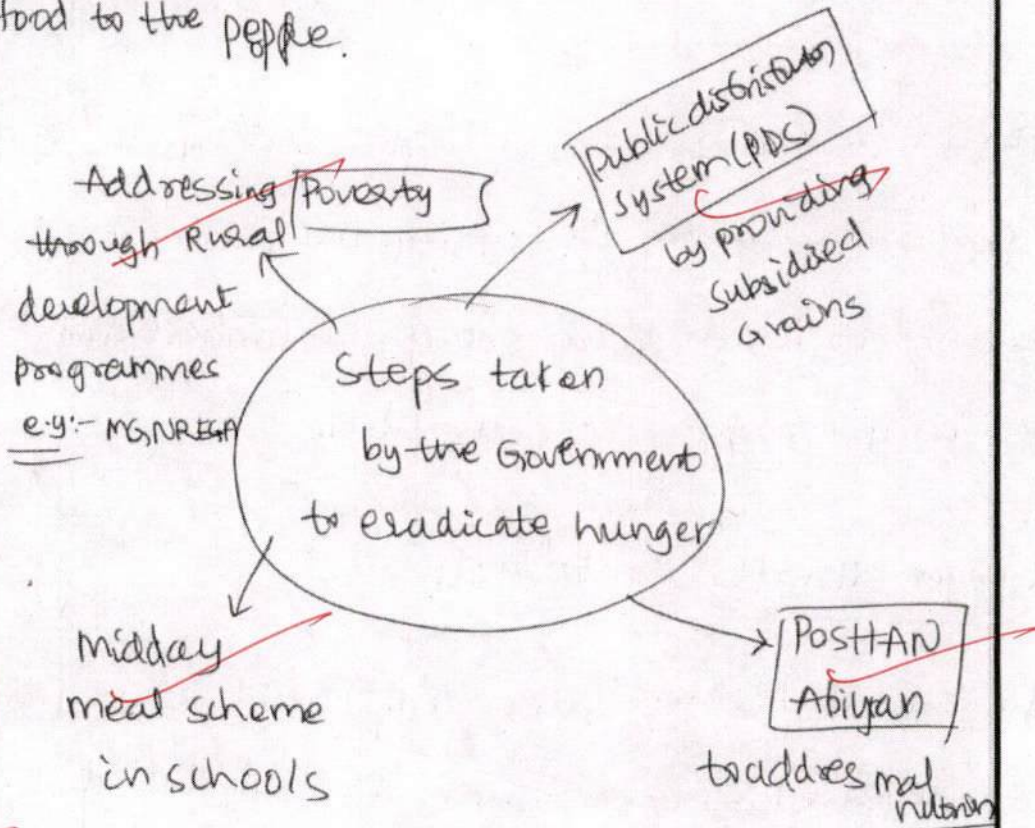 food to the people.
Addressing Poverty
through Rural
development
programmes
e.g:- MGNREGA
Public distribution
system (PDS)
by providing
subsidised
Grains
Steps taken
by the Government
to eradicate hunger
Midday
meal scheme
in schools
POSHAN
Abiyan
to addres mal
nutrition